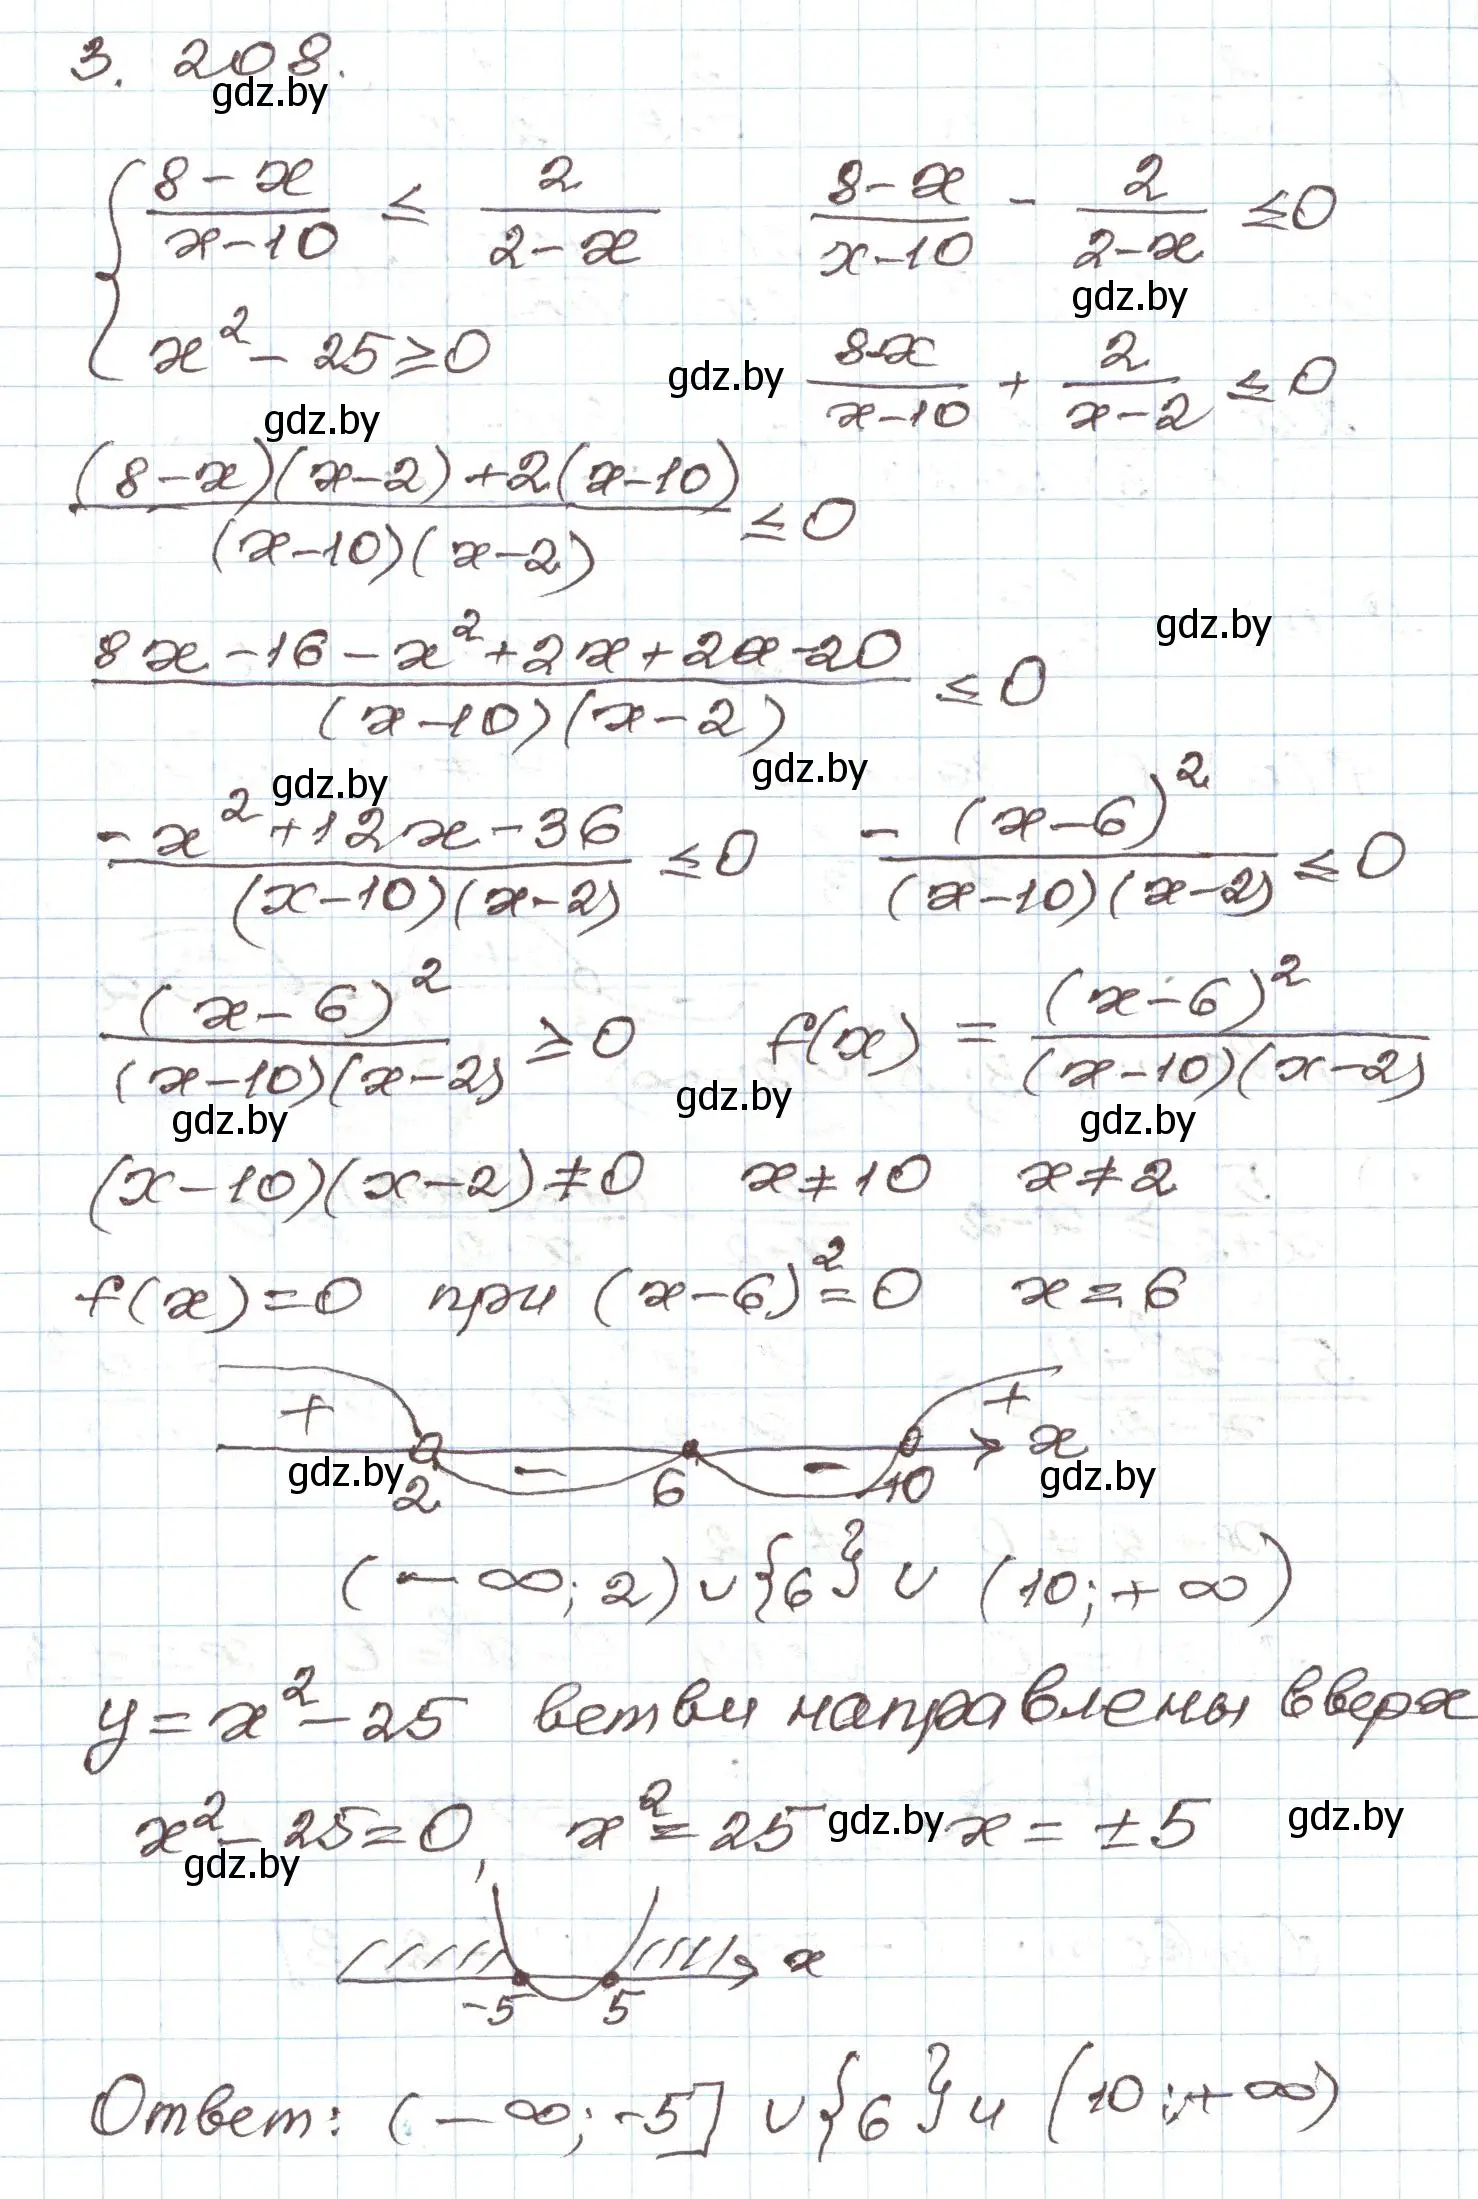 3. 208.
gdz.by
{ (8-x)/(x-10) ≤ 2/(2-x)    (8-x)/(x-10) - 2/(2-x) ≤ 0
gdz.by
x² - 25 ≥ 0    gdz.by    (8-x)/(x-10) + 2/(x-2) ≤ 0
gdz.by
((8-x)(x-2)+2(x-10))/((x-10)(x-2)) ≤ 0
gdz.by
(8x-16-x²+2x+2x-20)/((x-10)(x-2)) ≤ 0
gdz.by gdz.by
(-x²+12x-36)/((x-10)(x-2)) ≤ 0    -(x-6)²/((x-10)(x-2)) ≤ 0
(x-6)²/((x-10)(x-2)) ≥ 0    f(x) = (x-6)²/((x-10)(x-2))
gdz.by gdz.by gdz.by
(x-10)(x-2)≠0    x≠10    x≠2
f(x)=0 при (x-6)²=0    x=6
+ - - + x
gdz.by 2 6 10 gdz.by
(-∞; 2)∪{6}∪(10;+∞)
y=x²-25 ветви направлены вверх
x²-25=0, x²=25 gdz.by x=±5 gdz.by
gdz.by
x
-5 5
Ответ: (-∞;-5]∪{6}∪(10;+∞)